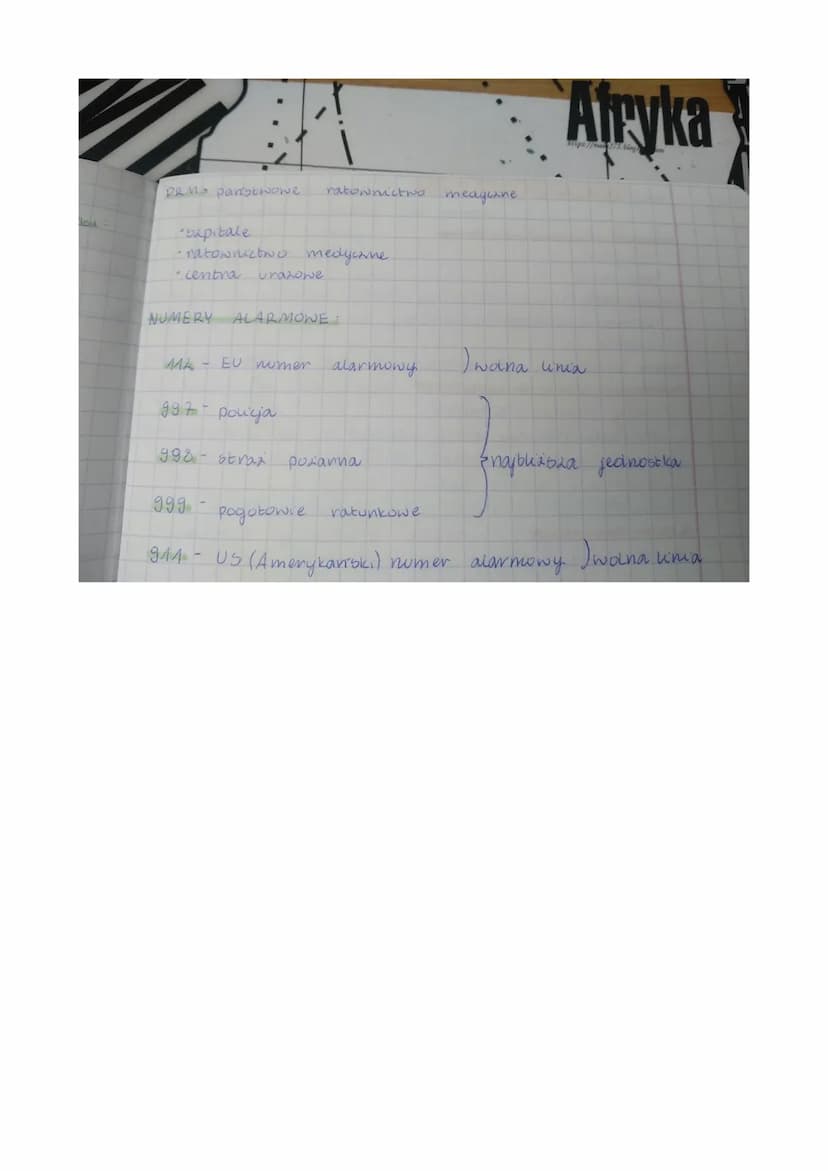 Afryka
PRM → państwowe ratownictwo medyczne
• szpitale
• ratownictwo medyczne
• centra urazowe
NUMERY ALARMOWE:
112 - EU numer alarmowy ) wolna linia
997 - policja
998 - straż pożarna } najbliższa jednostka
999 - pogotowie ratunkowe
911 - US (Amerykański) numer alarmowy ) wolna linia